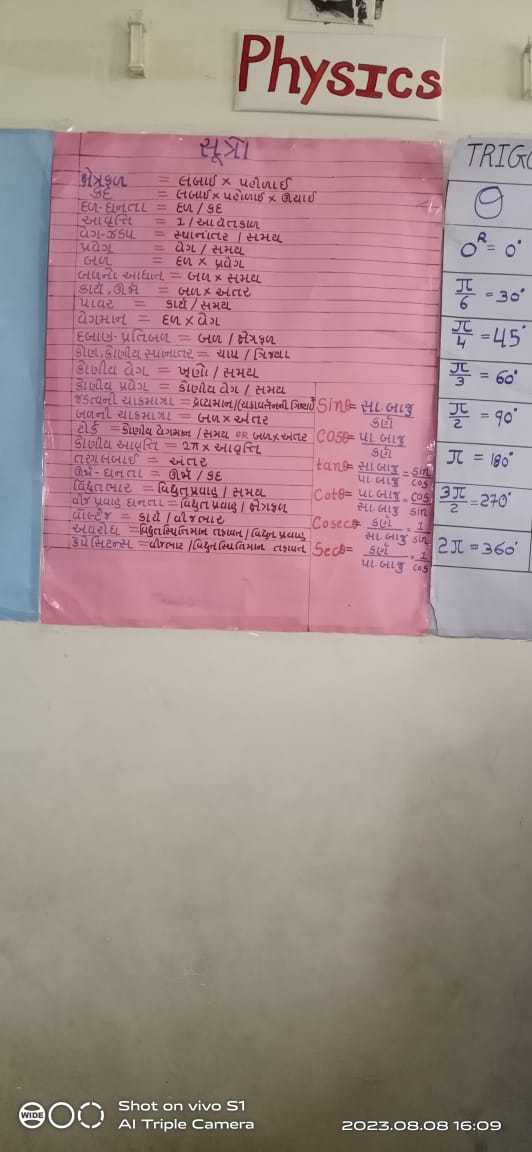 Physics
સૂત્રો
ક્ષેત્રફળ = લંબાઈ × પહોળાઈ
કદ = લંબાઈ × પહોળાઈ × ઊંચાઈ
દળ-ઘનતા = દળ / કદ
આવૃત્તિ = 1 / આવર્તકાળ
વેગ-ઝડપ = સ્થાનાંતર / સમય
પ્રવેગ = વેગ / સમય
બળ = દળ × પ્રવેગ
બળનો આઘાત = બળ × સમય
કાર્ય, ઊર્જા = બળ × અંતર
પાવર = કાર્ય / સમય
વેગમાન = દળ × વેગ
દબાણ-પ્રતિબળ = બળ / ક્ષેત્રફળ
કોણ, કોણીય સ્થાનાંતર = ચાપ / ત્રિજ્યા
કોણીય વેગ = ખૂણો / સમય
કોણીય પ્રવેગ = કોણીય વેગ / સમય
જડત્વની ચાકમાત્રા =
બળની ચાકમાત્રા = બળ × અંતર
ટોર્ક = કોણીય વેગમાન / સમય OR બળ × અંતર
કોણીય આવૃત્તિ = 2π × આવૃત્તિ
તરંગલંબાઈ = અંતર
ઊર્જા-ઘનતા = ઊર્જા / કદ
વિદ્યુતભાર = વિદ્યુતપ્રવાહ / સમય
વીજ પ્રવાહ ઘનતા = વિદ્યુતપ્રવાહ / ક્ષેત્રફળ
વોલ્ટેજ = કાર્ય / વીજભાર
અવરોધ = વિદ્યુતસ્થિતિમાન તફાવત / વિદ્યુત પ્રવાહ
કેપેસિટન્સ = વીજભાર / વિદ્યુતસ્થિતિમાન તફાવત
Sinθ = સા.બાજુ / કર્ણ
Cosθ = પા.બાજુ / કર્ણ
tanθ = સા.બાજુ / પા.બાજુ = sin / cos
Cotθ = પા.બાજુ / સા.બાજુ = cos / sin
Cosecθ = કર્ણ / સા.બાજુ = 1 / sin
Secθ = કર્ણ / પા.બાજુ = 1 / cos
TRIGO
θ
0ᴿ = 0°
π/6 = 30°
π/4 = 45°
π/3 = 60°
π/2 = 90°
π = 180°
3π/2 = 270°
2π = 360°
WIDE
Shot on vivo S1
AI Triple Camera
2023.08.08 16:09